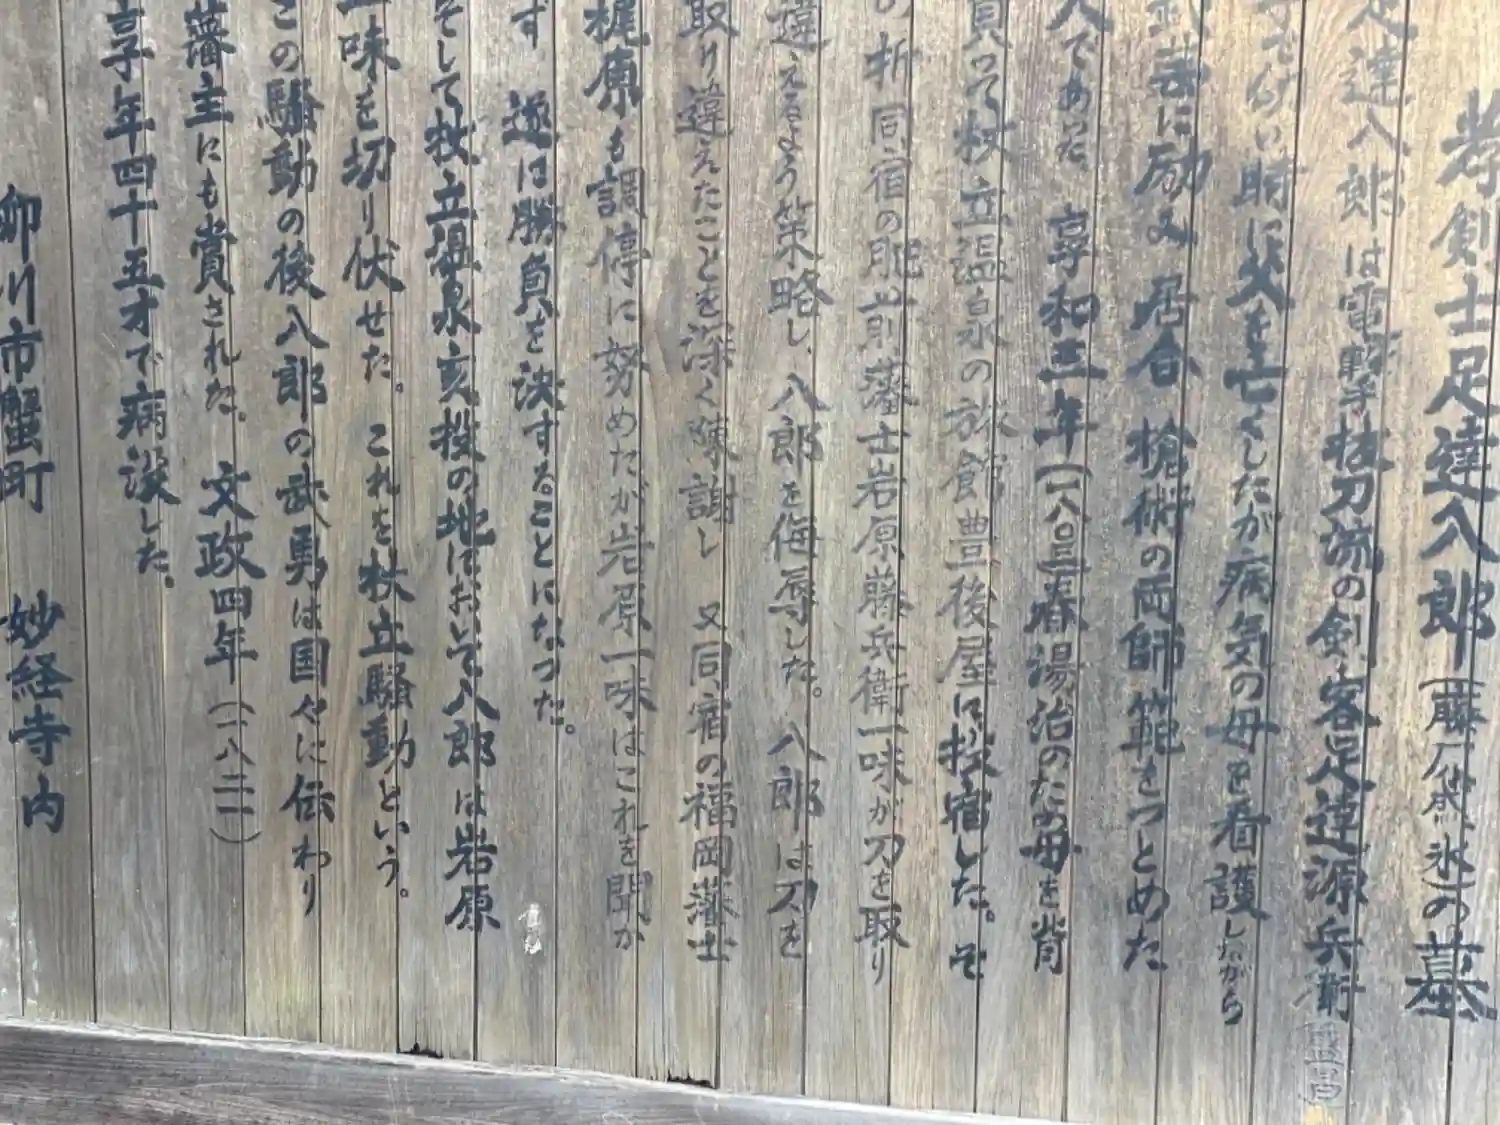 孝剣士足達八郎(藤原（）の墓
足達八郎は電撃抜刀流の剣客足達源兵衛
けい時に父を亡くしたが病気の母を看護しながら
武芸に励み 居合 槍術の両師範をつとめた
人であった。享和三年(一八〇三)春湯治のため母を背
負って杖立温泉の旅館豊後屋に投宿した。そ
の折同宿の肥前藩士岩原藤兵衛一味が刀を取り
違えるよう策略し、八郎を侮辱した。八郎は刀を
取り違えたことを深く陳謝し 又同宿の福岡藩士
梶原も調停に努めたが岩原一味はこれを聞か
ず 遂に勝負を決することになった。
そして杖立温泉亥投の地において八郎は岩原
一味を切り伏せた。これを杖立騒動という。
この騒動の後八郎の武勇は国々に伝わり
藩主にも賞された。 文政四年(一八二一)
享年四十五才で病没した。
柳川市蟹町 妙経寺内